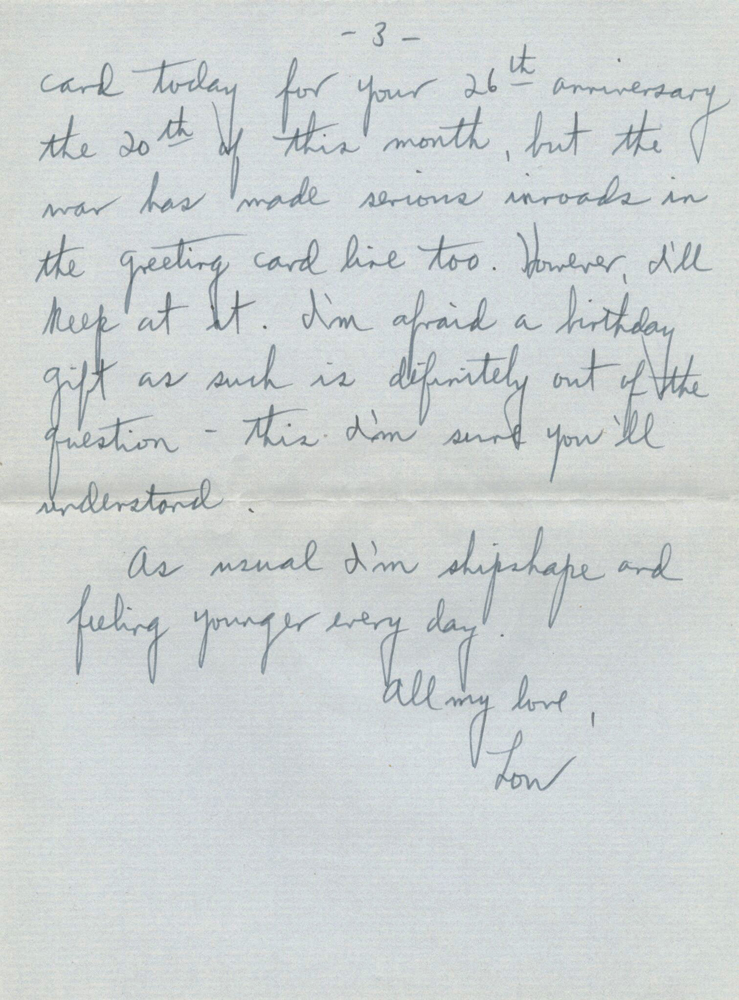 - 3 -
card today for your 26th anniversary
the 20th of this month, but the
war has made serious inroads in
the greeting card line too. However, I'll
keep at it. I'm afraid a birthday
gift as such is definitely out of the
question - this I'm sure you'll
understand.
As usual I'm shipshape and
feeling younger every day.
All my love,
Lou